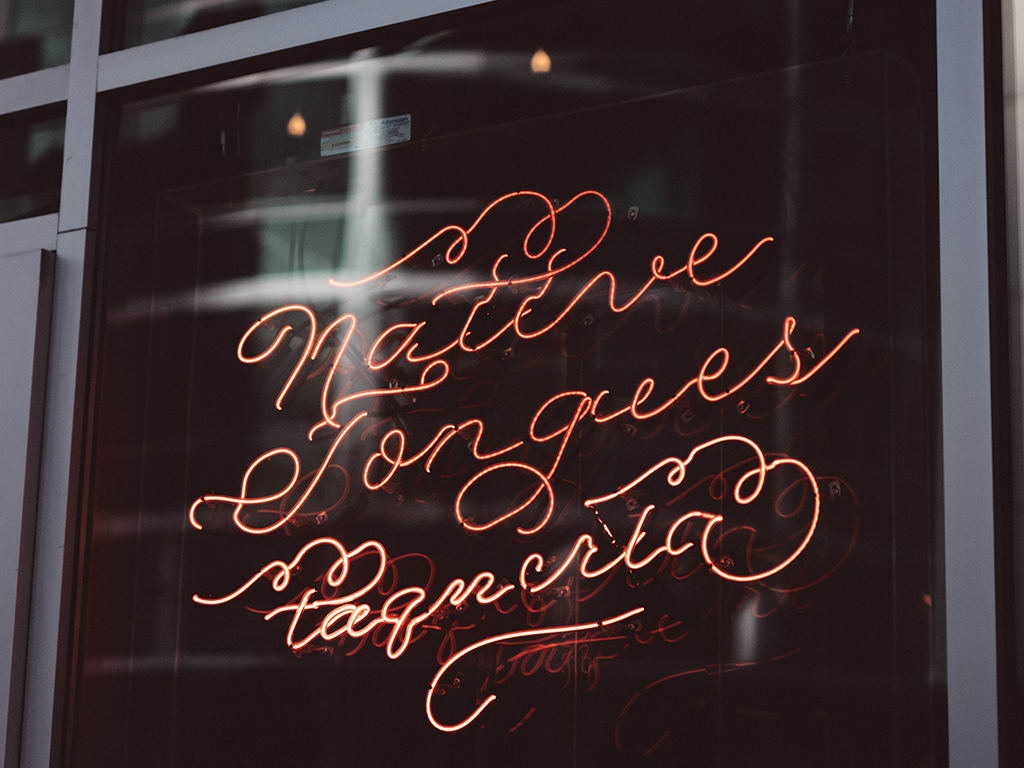 Native
Tongues
taqueria